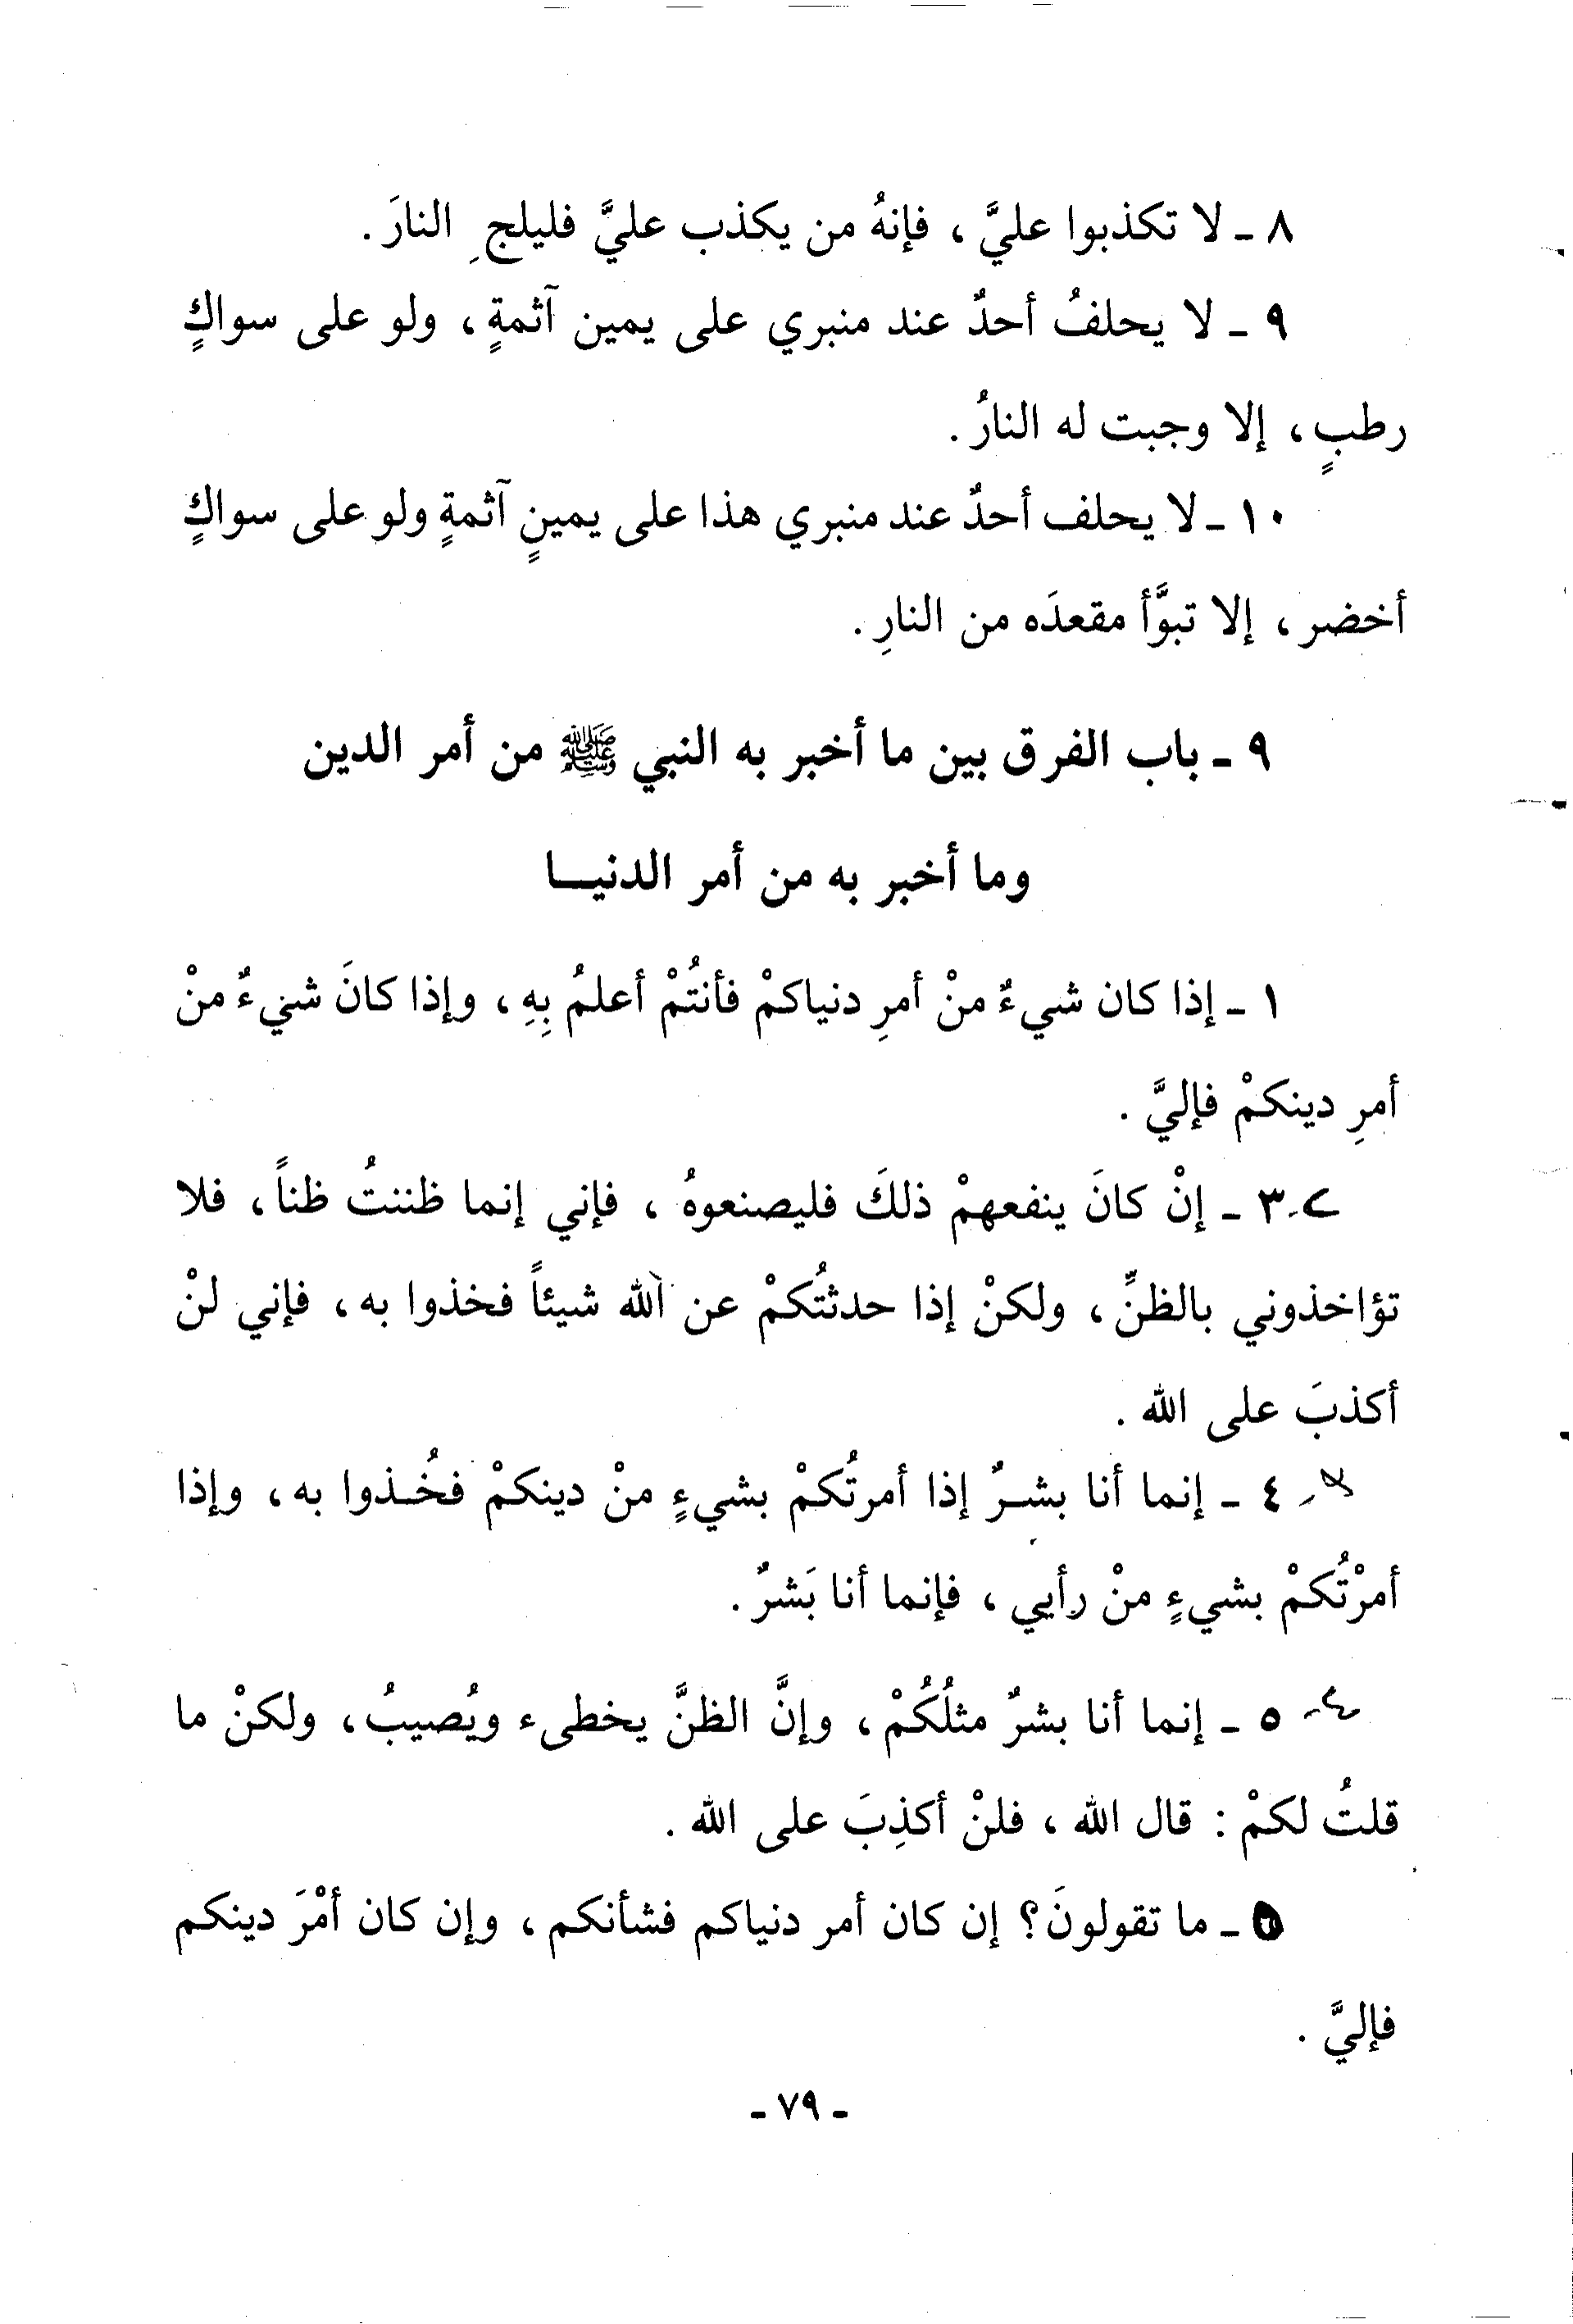 ٨ ـ لا تكذبوا عليَّ ، فإنهُ من يكذب عليَّ فليلجِ النارَ .
٩ ـ لا يحلفُ أحدٌ عند منبري على يمين آثمةٍ ، ولو على سواكٍ
رطبٍ ، إلا وجبت له النارُ .
١٠ ـ لا يحلف أحدٌ عند منبري هذا على يمينٍ آثمةٍ ولو على سواكٍ
أخضر ، إلا تبوَّأ مقعدَه من النارِ .
٩ ـ باب الفرق بين ما أخبر به النبي ﷺ من أمر الدين
وما أخبر به من أمر الدنيـــا
١ ـ إذا كان شيءٌ منْ أمرِ دنياكمْ فأنتُمْ أعلمُ بِهِ ، وإذا كانَ شيءٌ منْ
أمرِ دينكمْ فإليَّ .
٣ ـ إنْ كانَ ينفعهمْ ذلكَ فليصنعوهُ ، فإني إنما ظننتُ ظناً ، فلا
تؤاخذوني بالظنِّ ، ولكنْ إذا حدثتُكمْ عن الله شيئاً فخذوا به ، فإني لنْ
أكذبَ على الله .
٤ ـ إنما أنا بشـرٌ إذا أمرتُكمْ بشيءٍ منْ دينكمْ فخُـذوا به ، وإذا
أمرْتُكمْ بشيءٍ منْ رأيي ، فإنما أنا بَشرٌ .
٥ ـ إنما أنا بشرٌ مثلُكُمْ ، وإنَّ الظنَّ يخطىء ويُصيبُ ، ولكنْ ما
قلتُ لكمْ : قال الله ، فلنْ أكذِبَ على الله .
٥ ـ ما تقولونَ ؟ إن كان أمر دنياكم فشأنكم ، وإن كان أمْرَ دينكم
فإليَّ .
ـ ٧٩ ـ